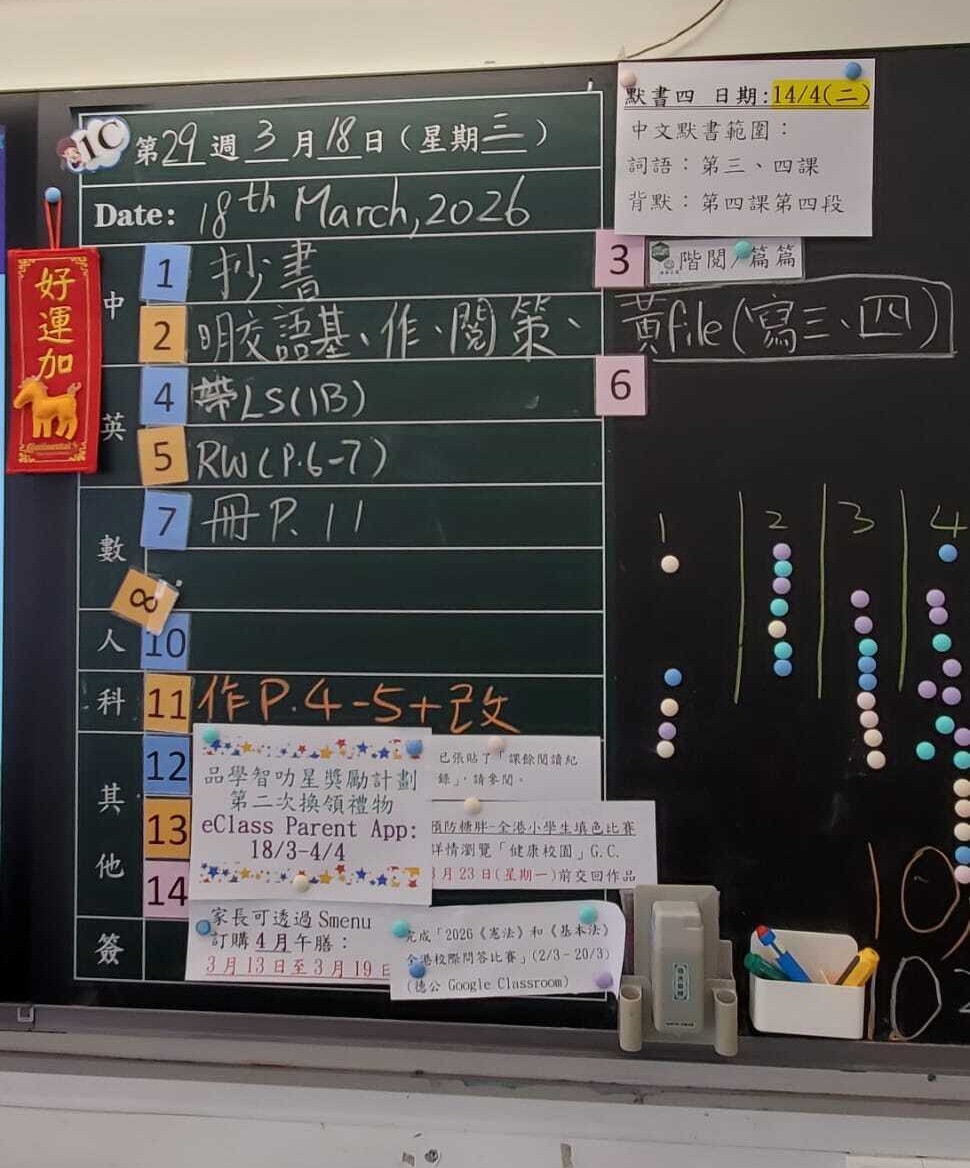 1C 第29週3月18日(星期三)
Date: 18th March, 2026
中
1 抄書
3 階閱/篇篇
2 明交語基、作、閱策、黃file(寫三、四)
英
4 帶LS(1B)
6
5 RW(P.6-7)
數
7 冊P.11
8
人
10
科
11 作P.4-5+改
其他
12
13
14
簽
默書四 日期:14/4(二)
中文默書範圍:
詞語:第三、四課
背默:第四課第四段
好運加
Continental
1 2 3 4
品學智叻星獎勵計劃
第二次換領禮物
eClass Parent App:
18/3-4/4
已張貼了「課餘閱讀紀
錄」,請參閱。
預防糖胖-全港小學生填色比賽
詳情瀏覽「健康校園」G.C.
3月23日(星期一)前交回作品
家長可透過 Smenu
訂購4月午膳:
3月13日至3月19日
完成「2026《憲法》和《基本法》
全港校際問答比賽」(2/3-20/3)
(德公 Google Classroom)
10
10